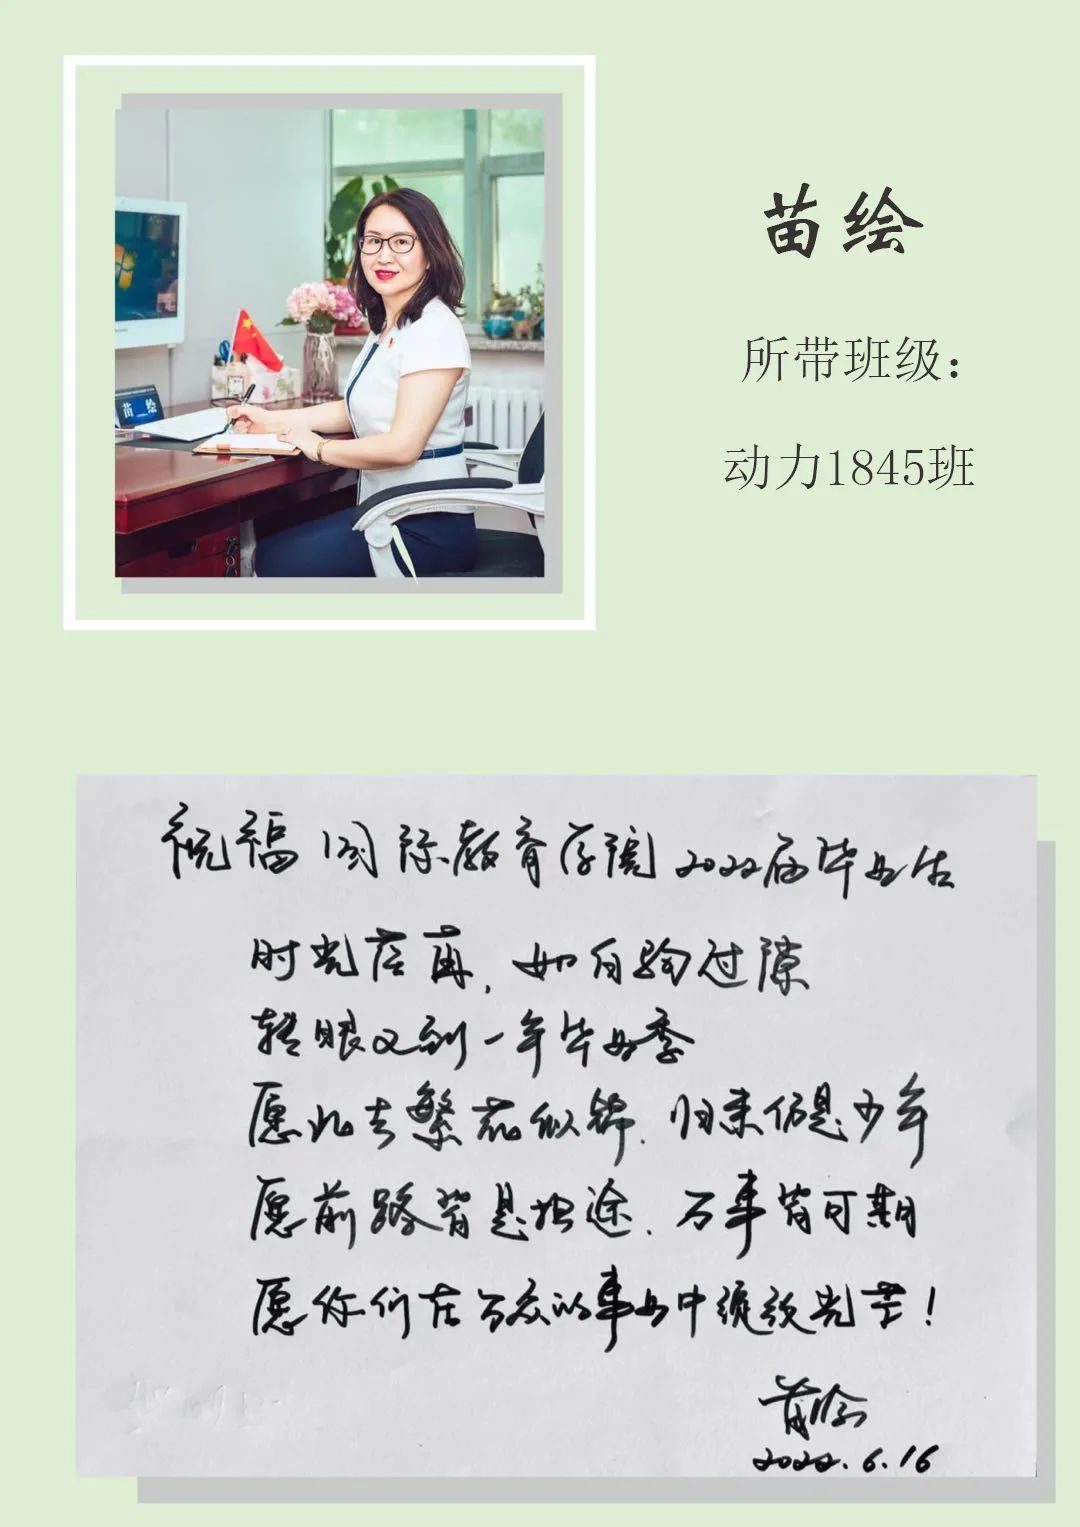 苗绘
所带班级：
动力1845班
苗 绘
祝福国际教育学院2022届毕业生
时光荏苒，如白驹过隙
转眼又到一年毕业季
愿此去繁花似锦，归来仍是少年
愿前路皆是坦途，万事皆可期
愿你们在的事业中绽放光芒！
苗绘
2022.6.16